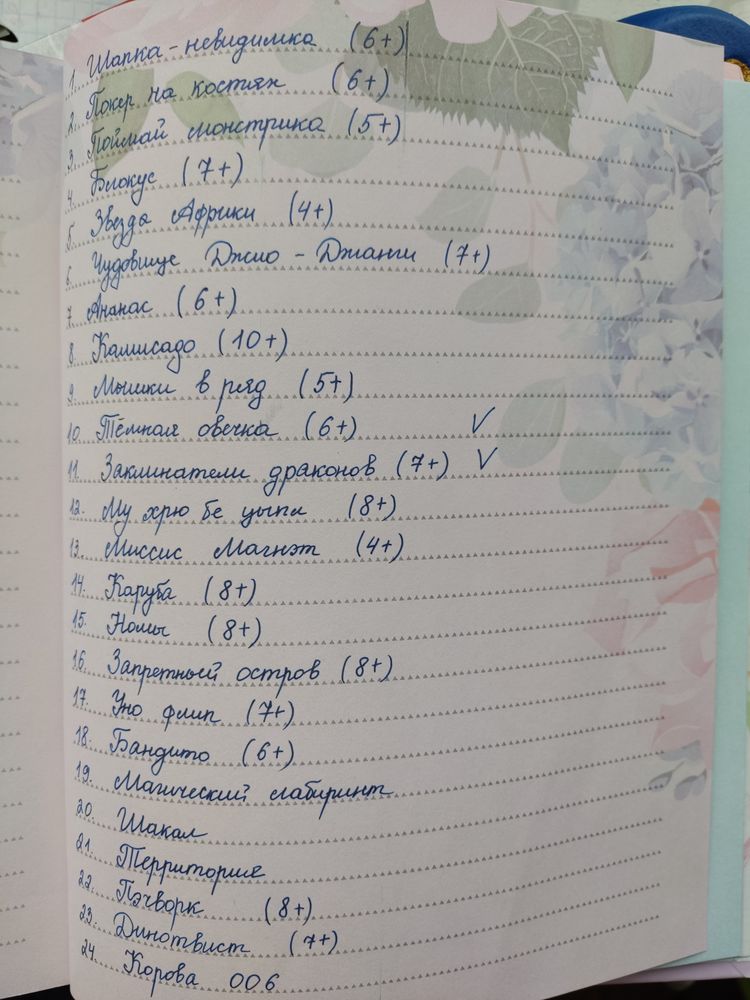 1. Шапка-невидимка (6+)
2. Покер на костях (6+)
3. Поймай монстрика (5+)
4. Блокус (7+)
5. Звезда Африки (4+)
6. Чудовище Джио-Джанги (7+)
7. Ананас (6+)
8. Камисадо (10+)
9. Мышки в ряд (5+)
10. Тёмная овечка (6+) V
11. Заклинатели драконов (7+) V
12. Му хрю бе цыпа (8+)
13. Миссис Магнэт (4+)
14. Каруба (8+)
15. Номы (8+)
16. Запретный остров (8+)
17. Уно флип (7+)
18. Бандито (6+)
19. Магический лабиринт
20. Шакал
21. Территория
22. Пэчворк (8+)
23. Динотвист (7+)
24. Корова 006